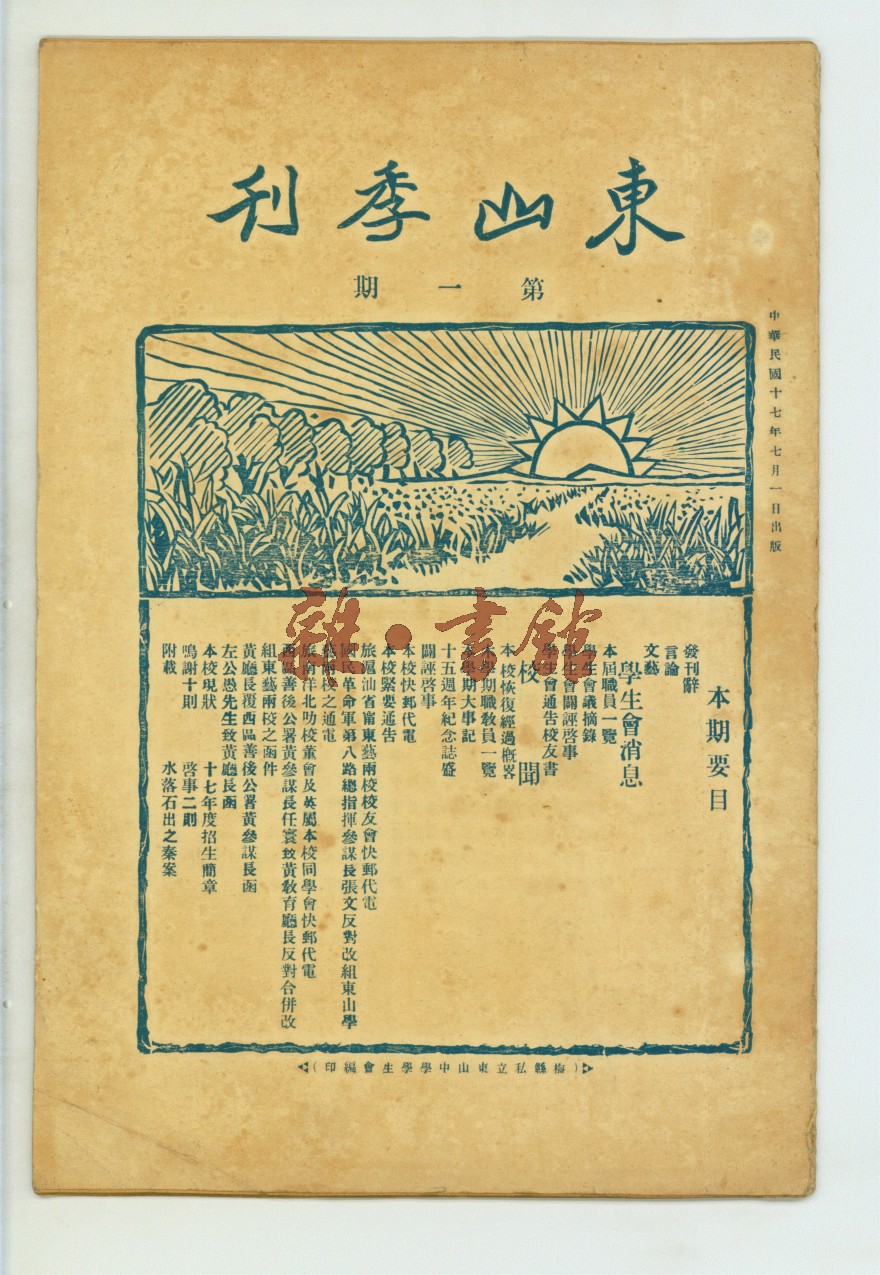 東山季刊
第一期
中華民國十七年七月一日出版
本期要目
發刊辭
言論
文藝
學生會消息
本屆職員一覽
學生會議摘錄
學生會闢誣啓事
學生會通告校友書
校聞
本校恢復經過槪畧
本學期職敎員一覽
本學期大事記
十五週年紀念誌盛
闢誣啓事
本校快郵代電
本校緊要通告
旅滬汕省甯東藝兩校校友會快郵代電
國民革命軍第八路總指揮參謀長張文反對改組東山學
藝兩校之通電
旅南洋北叻校董會及英屬本校同學會快郵代電
西區善後公署黃參謀長任寰致黃敎育廳長反對合併改
組東藝兩校之函件
黃廳長覆西區善後公署黃參謀長函
左公愚先生致黃廳長函
本校現狀 十七年度招生簡章
鳴謝十則 啓事二則
附載 水落石出之秦案
(梅縣私立東山中學學生會編印)
雜·書館